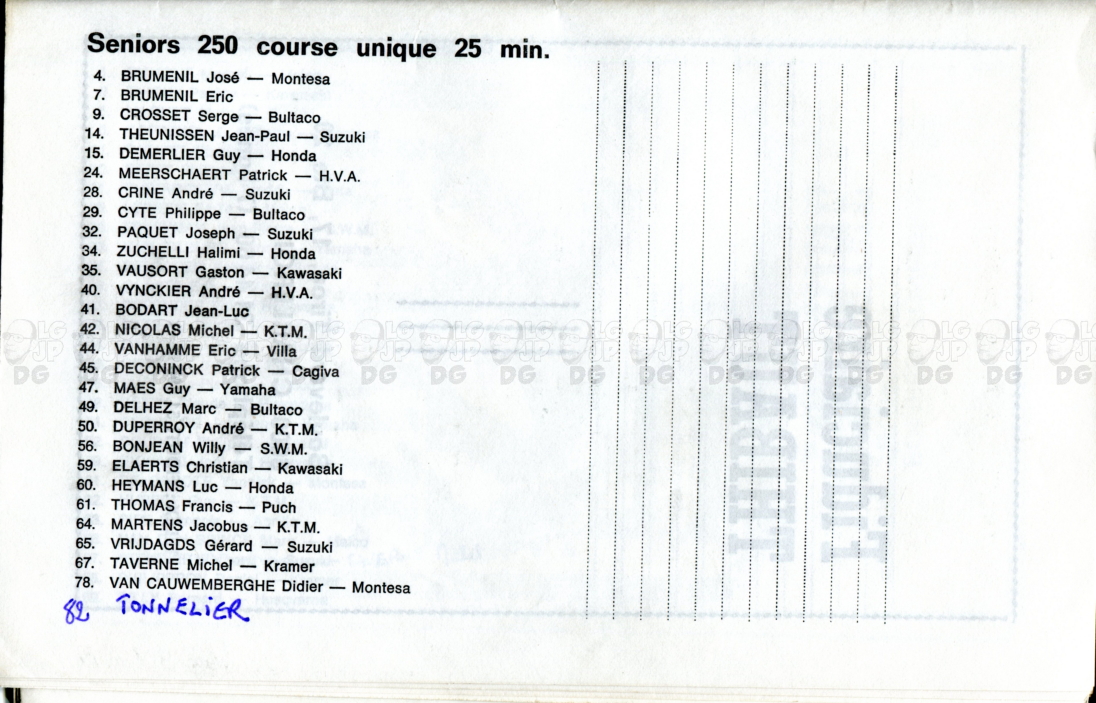 Seniors 250 course unique 25 min.
4. BRUMENIL José — Montesa
7. BRUMENIL Eric
9. CROSSET Serge — Bultaco
14. THEUNISSEN Jean-Paul — Suzuki
15. DEMERLIER Guy — Honda
24. MEERSCHAERT Patrick — H.V.A.
28. CRINE André — Suzuki
29. CYTE Philippe — Bultaco
32. PAQUET Joseph — Suzuki
34. ZUCHELLI Halimi — Honda
35. VAUSORT Gaston — Kawasaki
40. VYNCKIER André — H.V.A.
41. BODART Jean-Luc
42. NICOLAS Michel — K.T.M.
44. VANHAMME Eric — Villa
45. DECONINCK Patrick — Cagiva
47. MAES Guy — Yamaha
49. DELHEZ Marc — Bultaco
50. DUPERROY André — K.T.M.
56. BONJEAN Willy — S.W.M.
59. ELAERTS Christian — Kawasaki
60. HEYMANS Luc — Honda
61. THOMAS Francis — Puch
64. MARTENS Jacobus — K.T.M.
65. VRIJDAGDS Gérard — Suzuki
67. TAVERNE Michel — Kramer
78. VAN CAUWEMBERGHE Didier — Montesa
82 TONNELIER